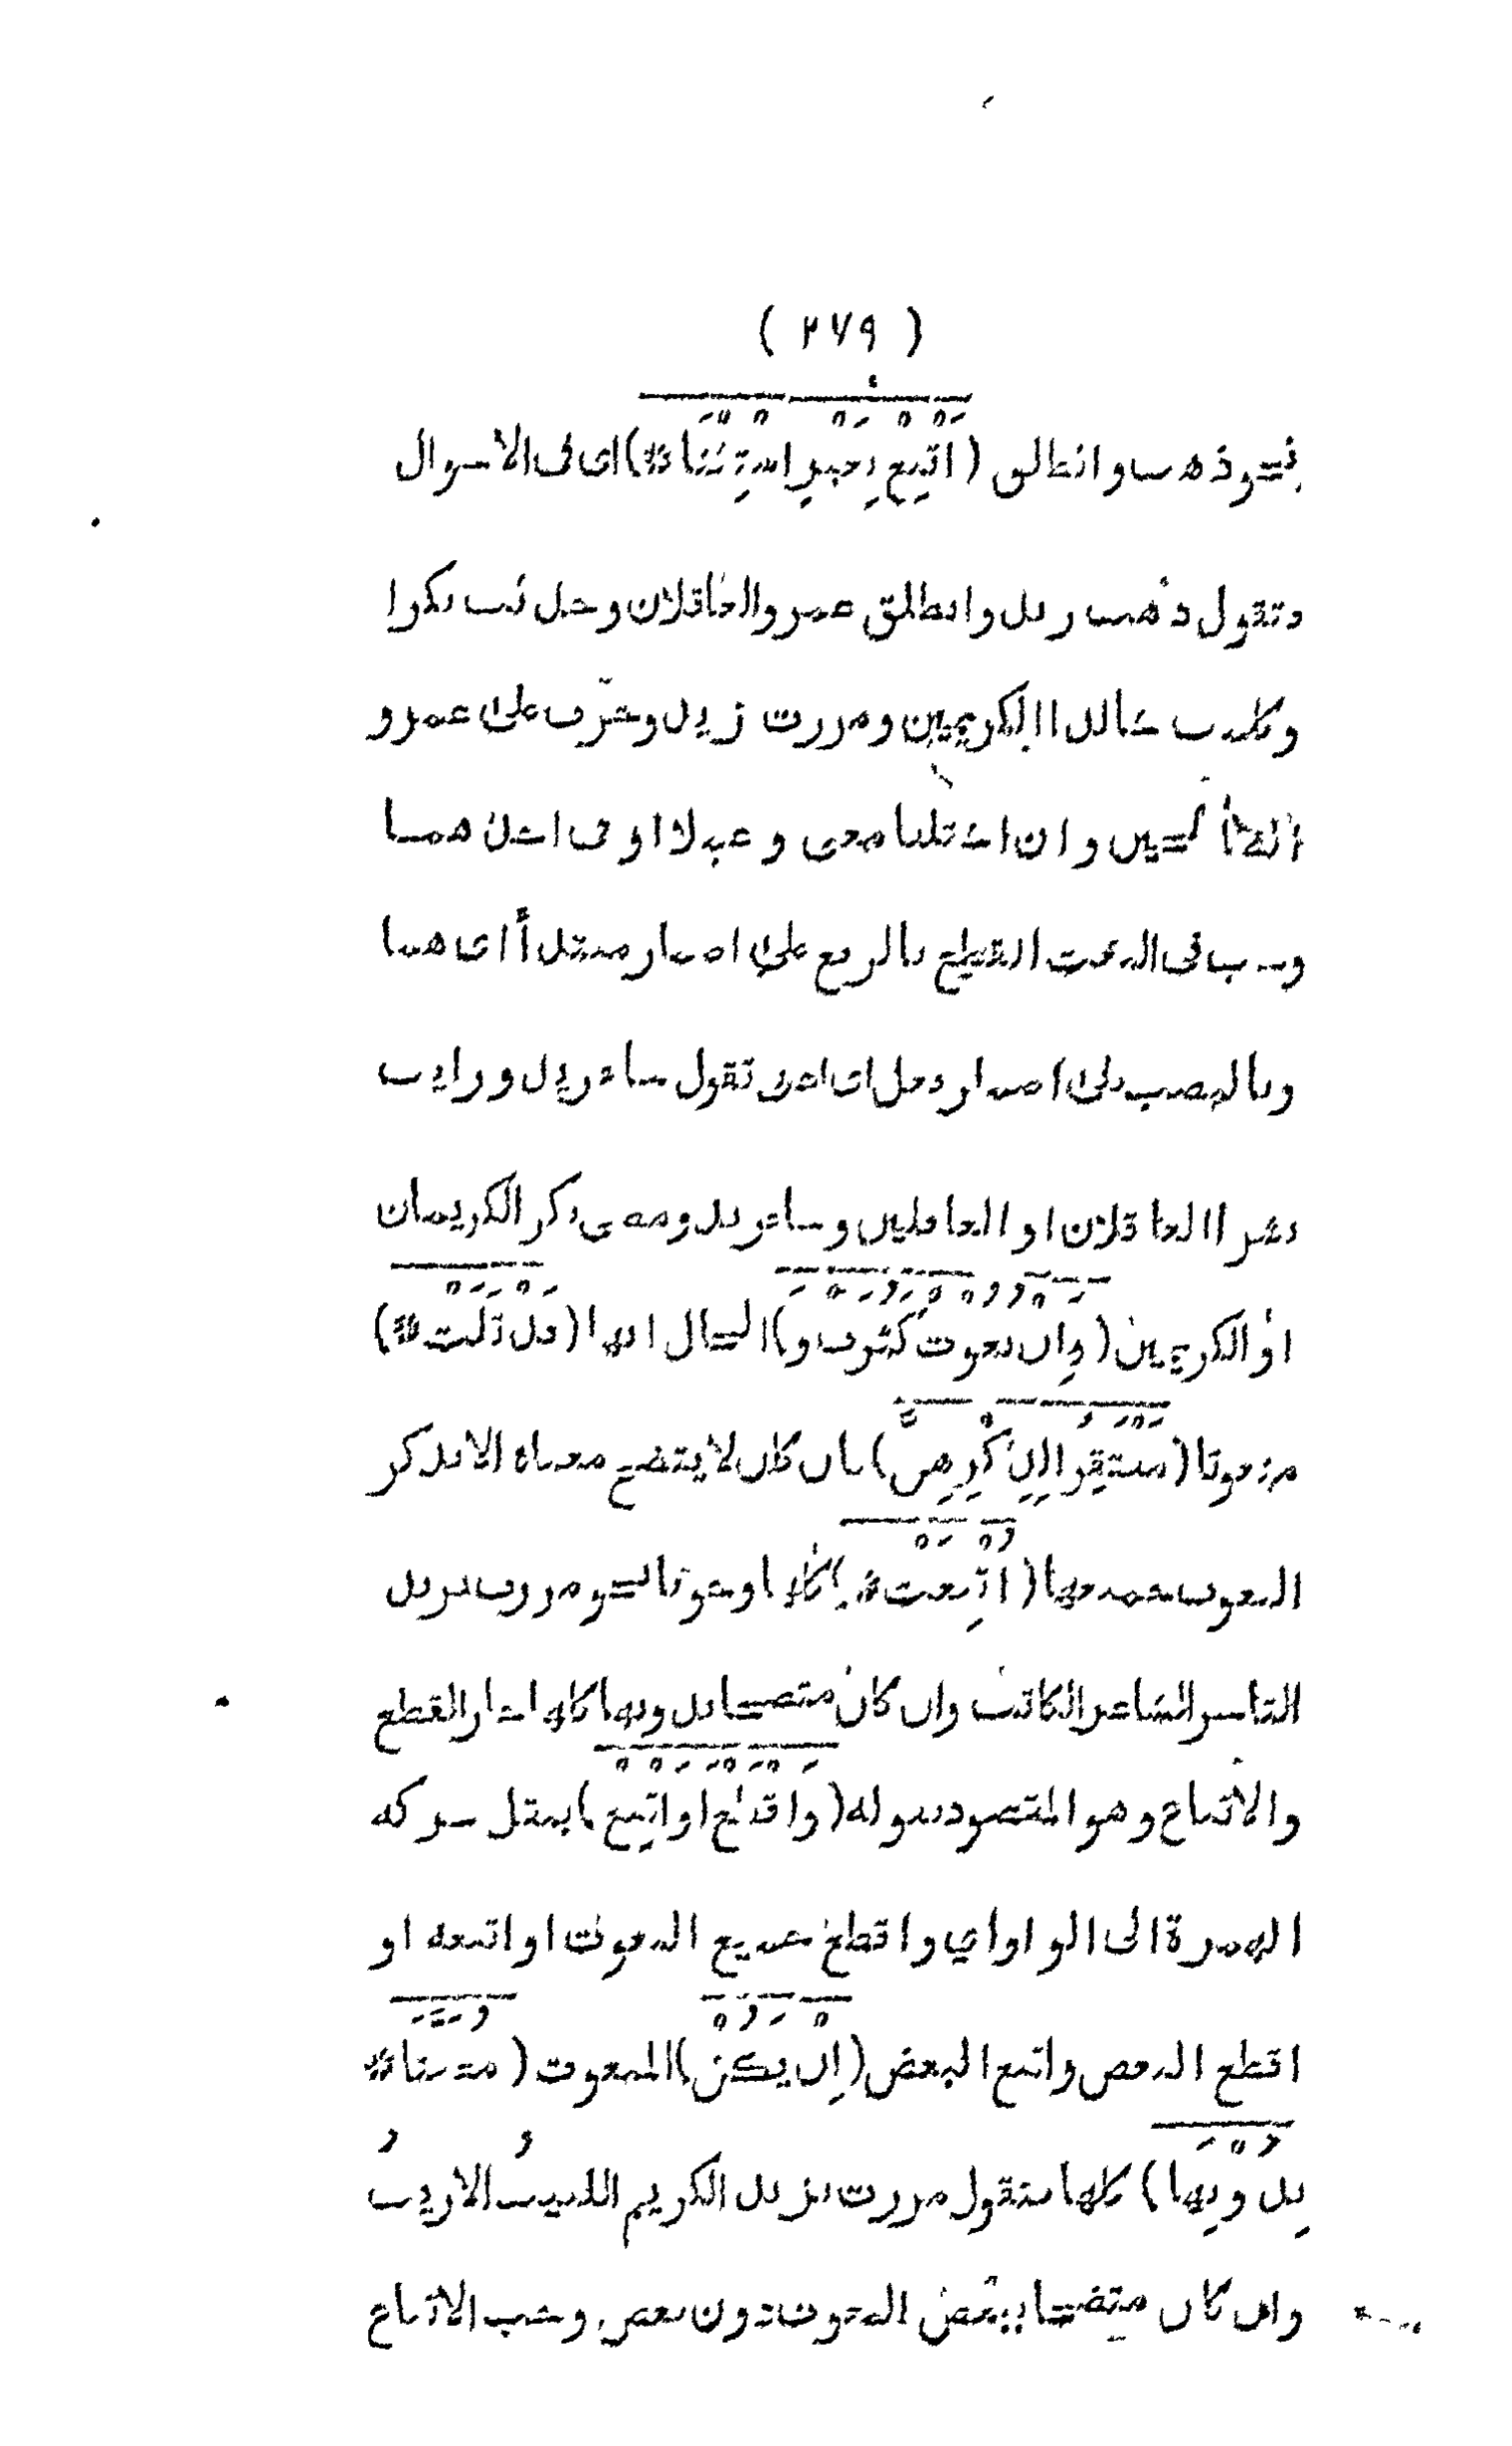 ( ٢٧٩ )
نحو ذهب وانطلق (اَتْبِعْ بِغَيْرِ اسْتِثْنَا *) اى فى الاحوال
وتقول ذهب زيد وانطلق عمرو العاقلان وحدثت بكرا
وكلمت خالدا الكريمين ومررت بزيد وعلى عمرو
الصالحين وان اختلفا معنى وعملا او فى احدهما
وجب فى النعت القطع بالرفع على اضمار مبتدأ اى هما
وبالنصب على اضمار فعل اى اعنى تقول جاء زيد ورايت
العاقلان او العاقلين وجاء زيد ومضى بكر الكريمان
او الكريمين (وَاِن نعوت كثرت و) الحال انها (قد تلت *)
منعوتا (مفتقرا لِذِكْرِهِنَّ) بان كان لا يتضح معناه الا بذكر
النعوت جميعها (اُتْبِعَت *) كلها وجوبا نحو مررت بزيد
التاجر الشاعر الكاتب وان كان متضحا بدونها كلها جاز القطع
والاتباع وهو المقصود بقوله (واقطع او اتبع) بنقل حركة
الهمزة الى الواو اي واقطع جميع النعوت او اتبعه او
اقطع البعض واتبع البعض (اِن يكن) المنعوت (معينا *
بدونها) كلها فتقول مررت بزيد الكريم اللبيب الاديب
وان كان متضحا ببعض النعوت دون بعض وجب الاتباع